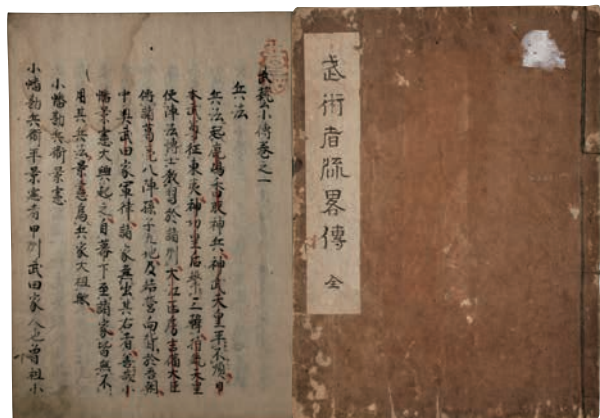 武術者疏畧傳 全
武藝小傳巻之一
兵法
兵法起鹿嶋香取神兵神武天皇平不順日
本武尊征東夷神功皇后挙三韓天皇
使陣法博士教習於諸州大江匡房吉備大臣
傳諸葛亮八陣孫子九地及結営向背於吾朝
中興武田家軍律諸家無出其右者小
幡景憲大興起之自幕下至諸家皆無不
用其兵法景憲爲兵家大祖矣
小幡勘兵衛景憲
小幡勘兵衛平景憲者甲州武田家人也曽祖小